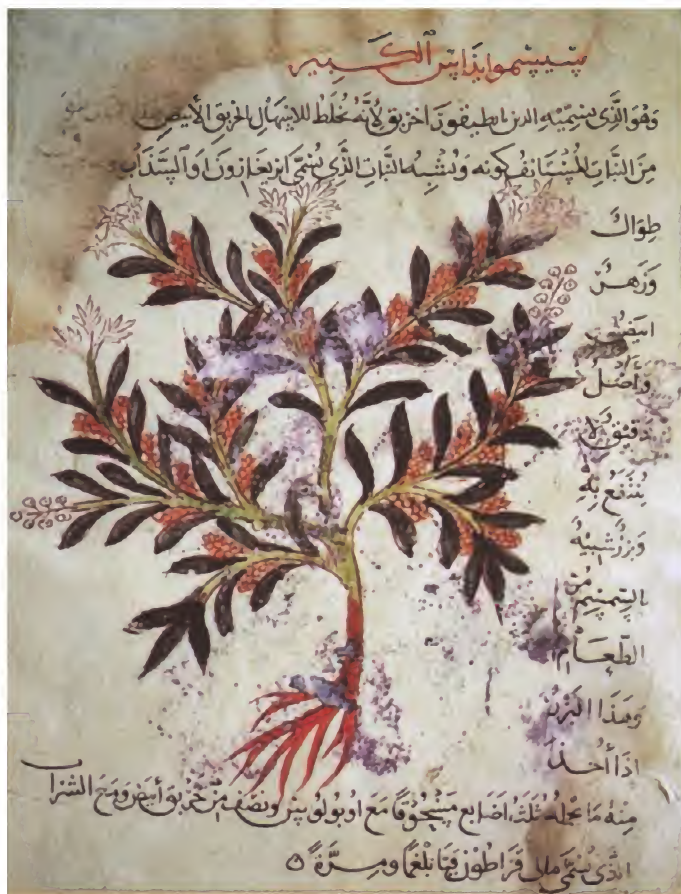 سيسمواىذاس الكبير
وهو الذي يسميه الذين بانطيقورا خربق لأنه يخلط للاسهال بالخربق الأبيض
من النبات المستانف كونه ويشبه النبات الذي يسمى ايريغارون او السنداب
طوال
وزهر
ابيض
وأصل
دقيق لا
ينتفع به
وبزر شبيه
بالسمسم مر
الطعام
وهذا البزر
اذا أخذ
منه ما يحمله ثلث اصابع مسحوقا مع اوبولوس ونصف من خربق أبيض ومع الشراب
الذي يسمى مالى قراطون قيا بلغما ومرة